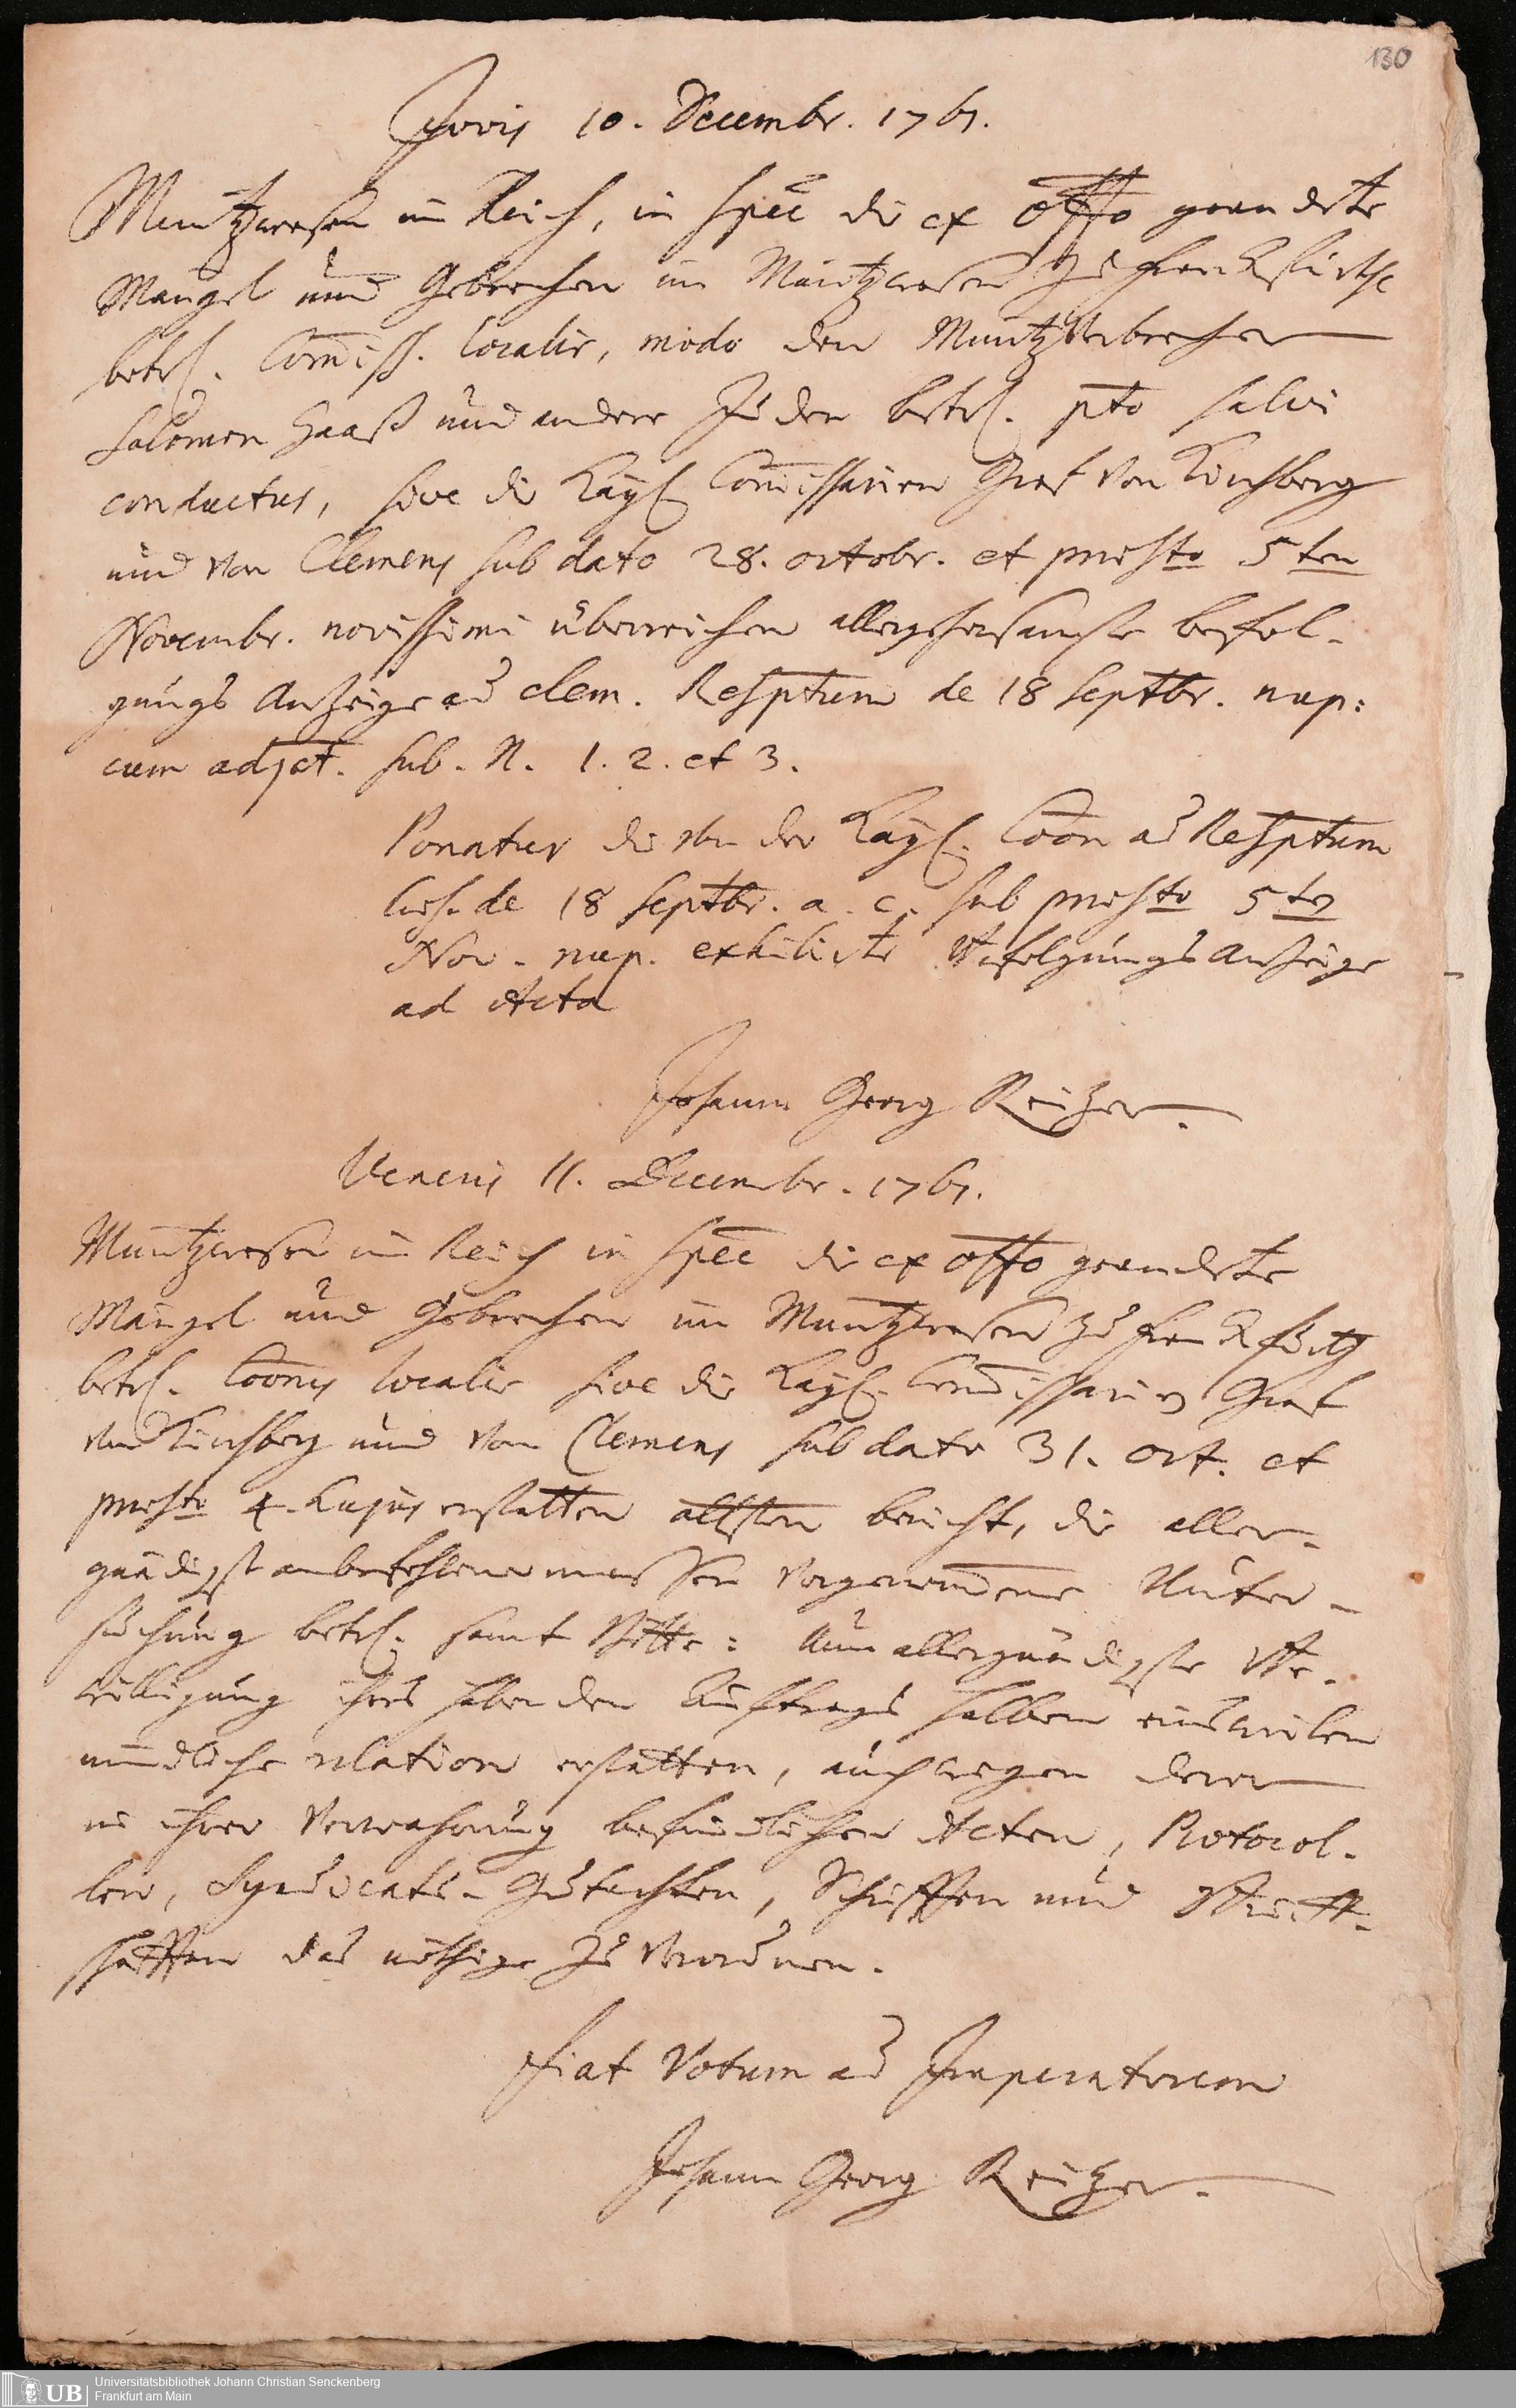 130
Jovis 10. Decembr. 1767.
Müntzwesen im Reich, in spec die ex offo geandete
Mängel und Gebrechen im Müntzwesen zu Franckfurth
betrf. Commiss. localis, modo den Müntzverbrecher
Salomon Haaß und andere Juden betrf. pto salvi
conductus, sive die Kayl Commissarien Graf von
und von Clemens sub dato 28. octobr. et praesto 5ten
Novembr. novissimi überreichen allergehorsamste befol-
gungs Anzeige ad clem. Rescptum de 18 Septbr. nup:
cum adjct. sub. N. 1. 2. et 3.
Ponatur die von der Kayl. Coon ad Rescptum
Caes. de 18 Septbr. a. c. sub praesto 5ten
Nov. nup. exhibirte Befolgungs Anzeige
ad Acta
Johann Georg Reizer.
Veneris 11. Decembr. 1767.
Müntzwesen im Reich in spec die ex offo geandete
Mängel und Gebrechen im Müntzwesen zu Franckfurth
betrf. Coonis localis sive die Kayl. Commissarien Graf
von und von Clemens sub dato 31. oct. et
praesto 4. hujus erstatten allgsten bericht, die aller-
gnädigst anbefohlener massen vorgenommene Unter-
suchung betrf. samt Bitte: Um allergnädigste Be-
willigung ihres habenden Auftrags halben einsweilen
mündliche relation erstatten, auch wegen derer
in ihrer Verwahrung befindlichen Acten, Protocol-
len, Syndicats-Gutachten, Schriften und
schafften das nöthige zu verordnen.
Fiat Votum ad Imperatorem
Johann Georg Reizer.
UB
Universitätsbibliothek Johann Christian Senckenberg
Frankfurt am Main